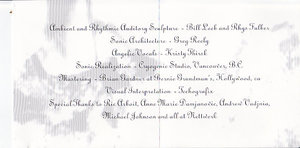 Ambient and Rhythmic Auditory Sculpture - Bill Leeb and Rhys Fulber
Sonic Architecture - Greg Reely
Angelic Vocals - Kristy Thirsk
Sonic Realization - Cryogenic Studio, Vancouver, B.C.
Mastering - Brian Gardner at Bernie Grundman's, Hollywood, ca
Visual Interpretation - Technografix
Special Thanks to Ric Arboit, Anne Marie Damjanovic, Andrew
Michael Johnson and all at Nettwerk